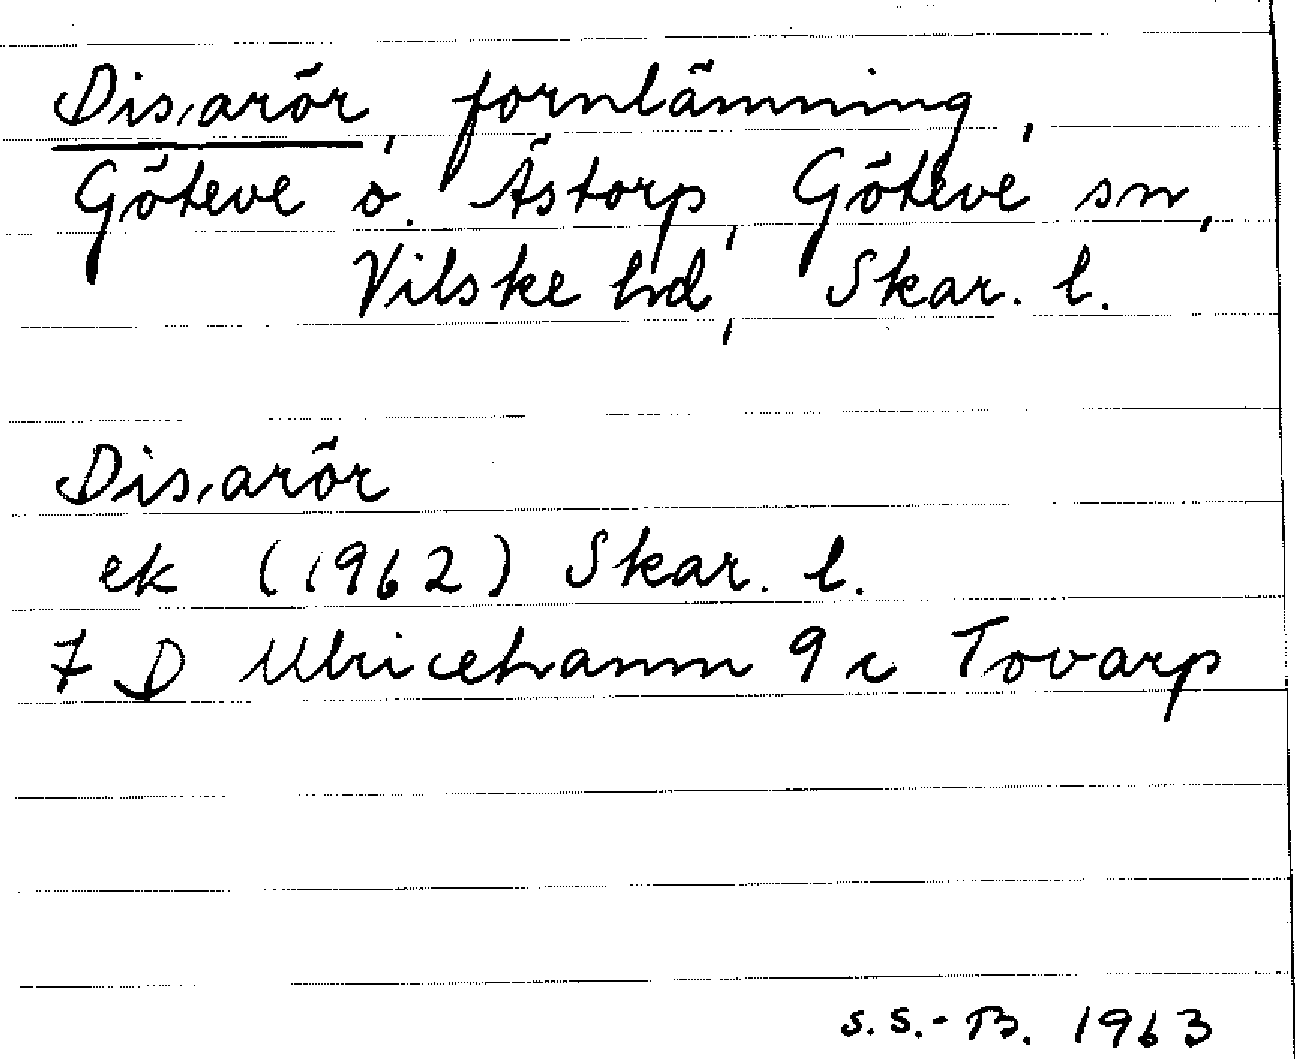 Dis,arör, fornlämning,
Göteve o. Ästorp, Göteve sn,
Vilske hd, Skar. l.
Dis,arör
ek (1962) Skar. l.
7 D Ulricehamn 9 c Tovarp
S.S.-B. 1963